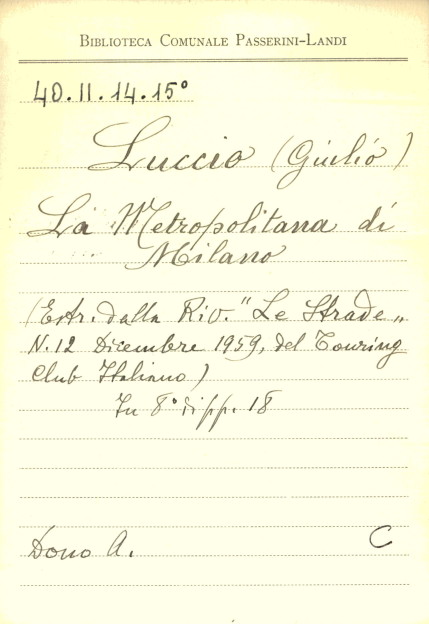 BIBLIOTECA COMUNALE PASSERINI-LANDI
40.II.14.15°
Luccio (Giulio)
La Metropolitana di
Milano
(Estr. dalla Riv. "Le Strade„
N. 12 Dicembre 1959, del Touring
Club Italiano)
In 8° di pp. 18
Dono A.
C